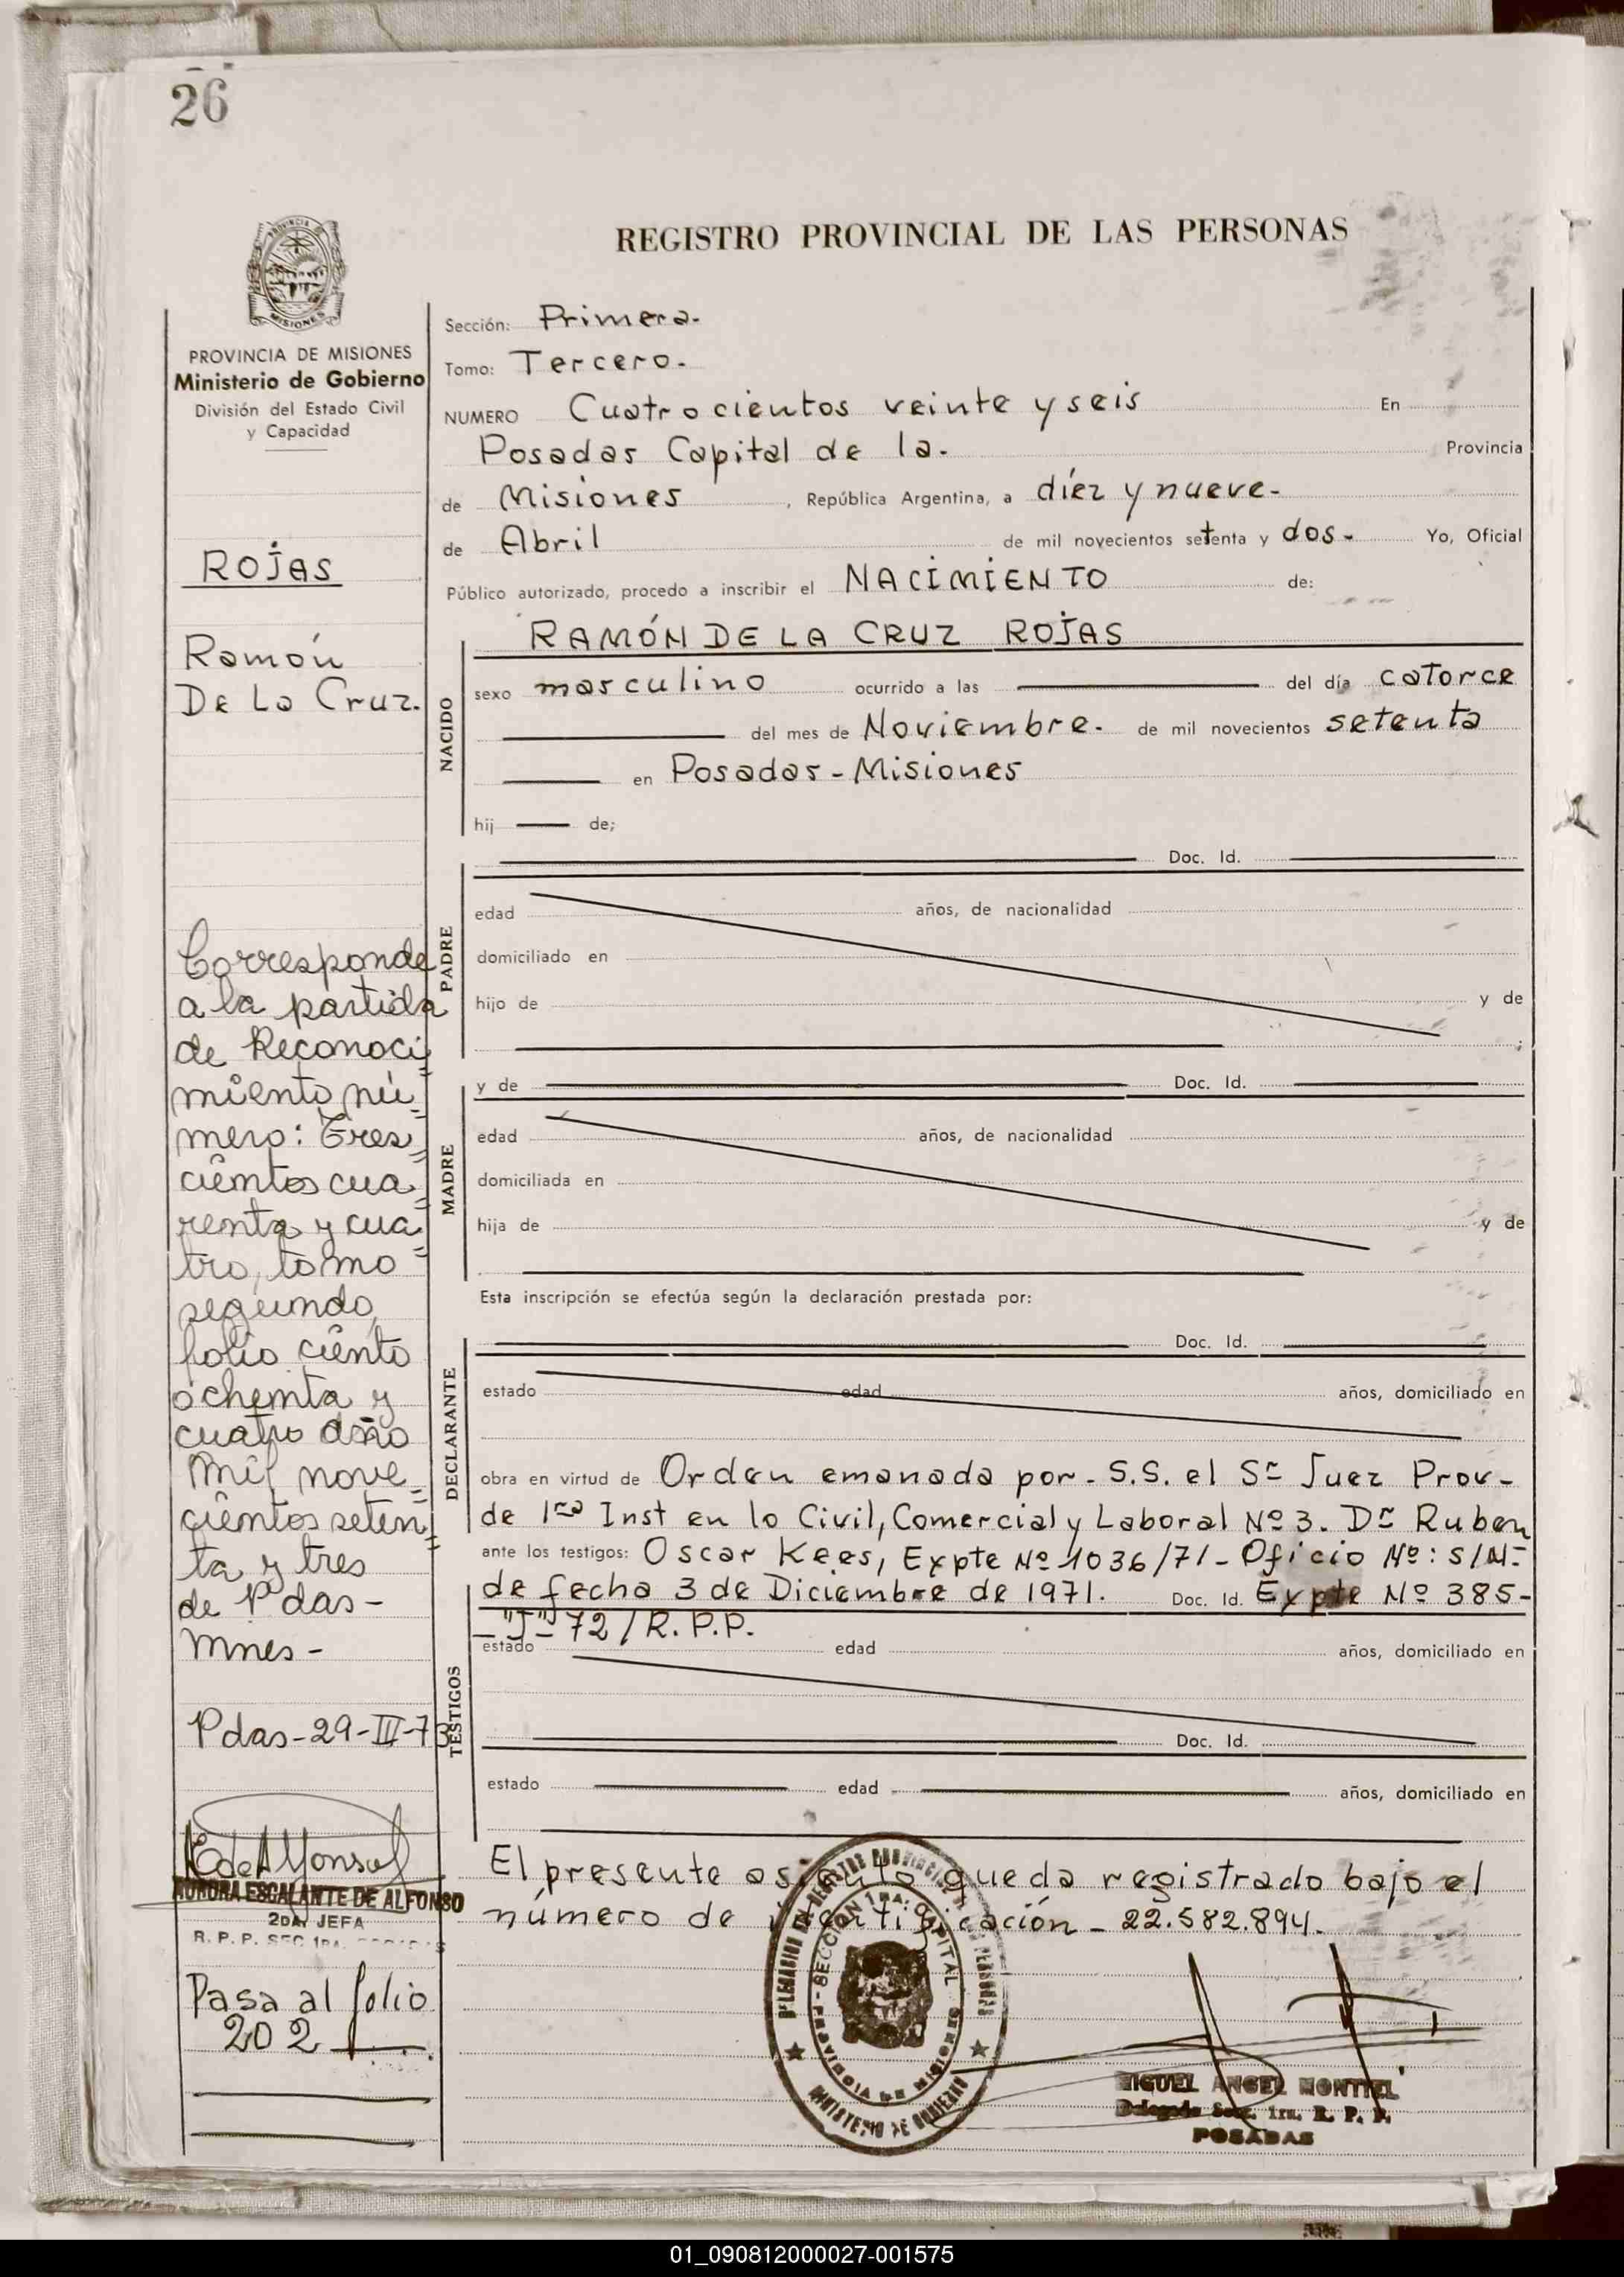 26
REGISTRO PROVINCIAL DE LAS PERSONAS
PROVINCIA
MISIONES
PROVINCIA DE MISIONES
Ministerio de Gobierno
División del Estado Civil
y Capacidad
ROJAS
Ramón
De La Cruz.
Corresponde
a la partida
de Reconoci=
miento nú=
mero: Tres=
cientos cua=
renta y cua=
tro, tomo
segundo,
folio ciento
ochenta y
cuatro año
Mil nove=
cientos seten=
ta y tres
de Pdas-
Mnes-
Pdas-29-III-73
AURORA ESCALANTE DE ALFONSO
2DA. JEFA
R. P. P. SEC 1RA. POSADAS
Pasa al folio
202
Sección: Primera.
Tomo: Tercero.
NUMERO Cuatrocientos veinte y seis En
Posadas Capital de la. Provincia
de Misiones, República Argentina, a diez y nueve-
de Abril de mil novecientos setenta y dos- Yo, Oficial
Público autorizado, procedo a inscribir el NACIMIENTO de:
NACIDO
RAMÓN DE LA CRUZ ROJAS
sexo masculino ocurrido a las del día catorce
del mes de Noviembre. de mil novecientos setenta
en Posadas-Misiones
hij de;
PADRE
Doc. Id.
edad años, de nacionalidad
domiciliado en
hijo de y de
;
MADRE
y de Doc. Id.
edad años, de nacionalidad
domiciliada en
hija de y de
Esta inscripción se efectúa según la declaración prestada por:
DECLARANTE
Doc. Id.
estado edad años, domiciliado en
obra en virtud de Orden emanada por-S.S. el Sr Juez Prov-
de 1ra Inst en lo Civil, Comercial y Laboral Nº3. Dr Ruben
ante los testigos: Oscar Kees, Expte Nº 1036/71-Oficio Nº: S/N-
de fecha 3 de Diciembre de 1971. Doc. Id. Expte Nº 385-
TESTIGOS
-"J"-72/R.P.P.
estado edad años, domiciliado en
Doc. Id.
estado edad años, domiciliado en
El presente asiento queda registrado bajo el
número de identificación-22.582.894.
DELEGACION DE REGISTRO PROVINCIAL DE LAS PERSONAS
SECCION 1RA. CAPITAL
PROVINCIA DE MISIONES
MINISTERIO DE GOBIERNO
MIGUEL ANGEL MONTIEL
Delegado Secc. 1ra. R. P. P.
POSADAS
01_090812000027-001575